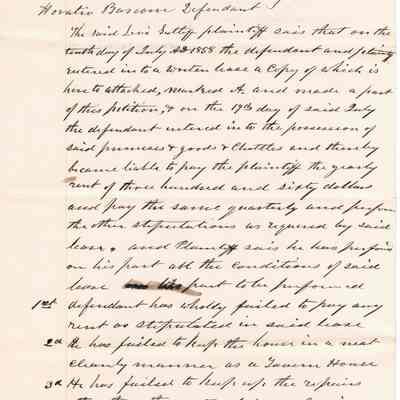 Horatio Bascom Defendant
The said Levi Sutliff plaintiff sais that on the
tenth day of July AD 1858 the defendant and plaintiff
entered into a writen lease a Copy of which is
hereto attached, marked A. and made a part
of this petition, & on the 19th day of said July
the defendant entered in to the possession of
said primeses & goods & Chattles and thereby
became liable to pay the plaintiff the yearly
rent of three hundred and sixty dollars
and pay the same quarterly and perform
the other stipulations as required by said
lease, and Plaintiff sais he has perform
on his part all the Conditions of said
lease part to be performed
1st defendant has wholly failed to pay any
rent as stipulated in said lease
2d He has failed to keep the house in a neat
cleanly manner as a Tavern House
3d He has failed to keep up the repairs